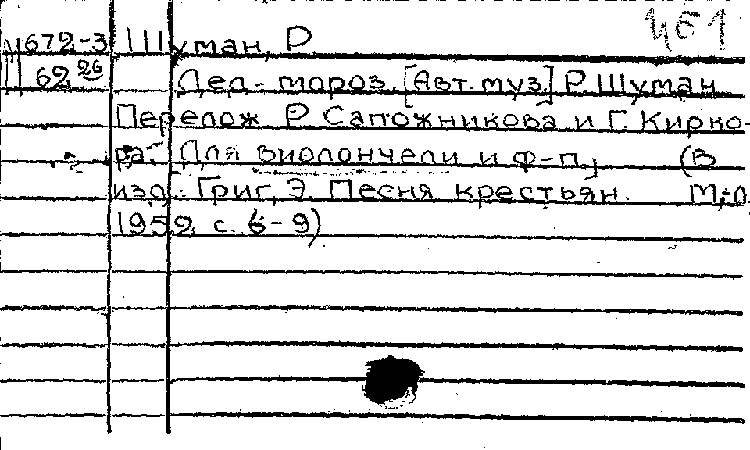 Ц61
Ц672-3 Шуман, Р.
62 26 Дед-мороз. [Авт. муз.] Р. Шуман
Перелож. Р. Сапожникова и Г. Кирко-
ра. Для виолончели и ф-п. (В
изд.: Григ, Э. Песня крестьян. М.;Л.
1952, с. 6-9)